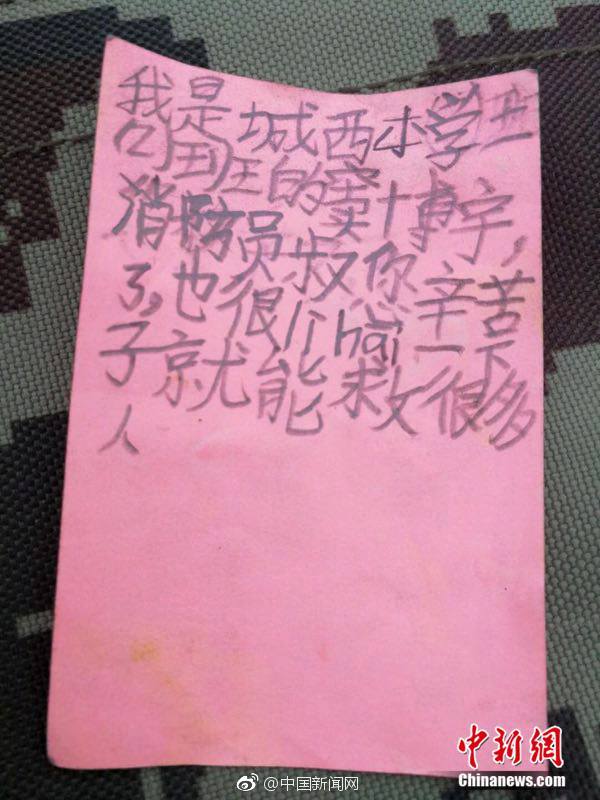 我是城西小学
班的窦博宇,
消防员叔你辛苦
了,也很厉hai一下
子就能救很多
人
@中国新闻网
中新網
Chinanews.com